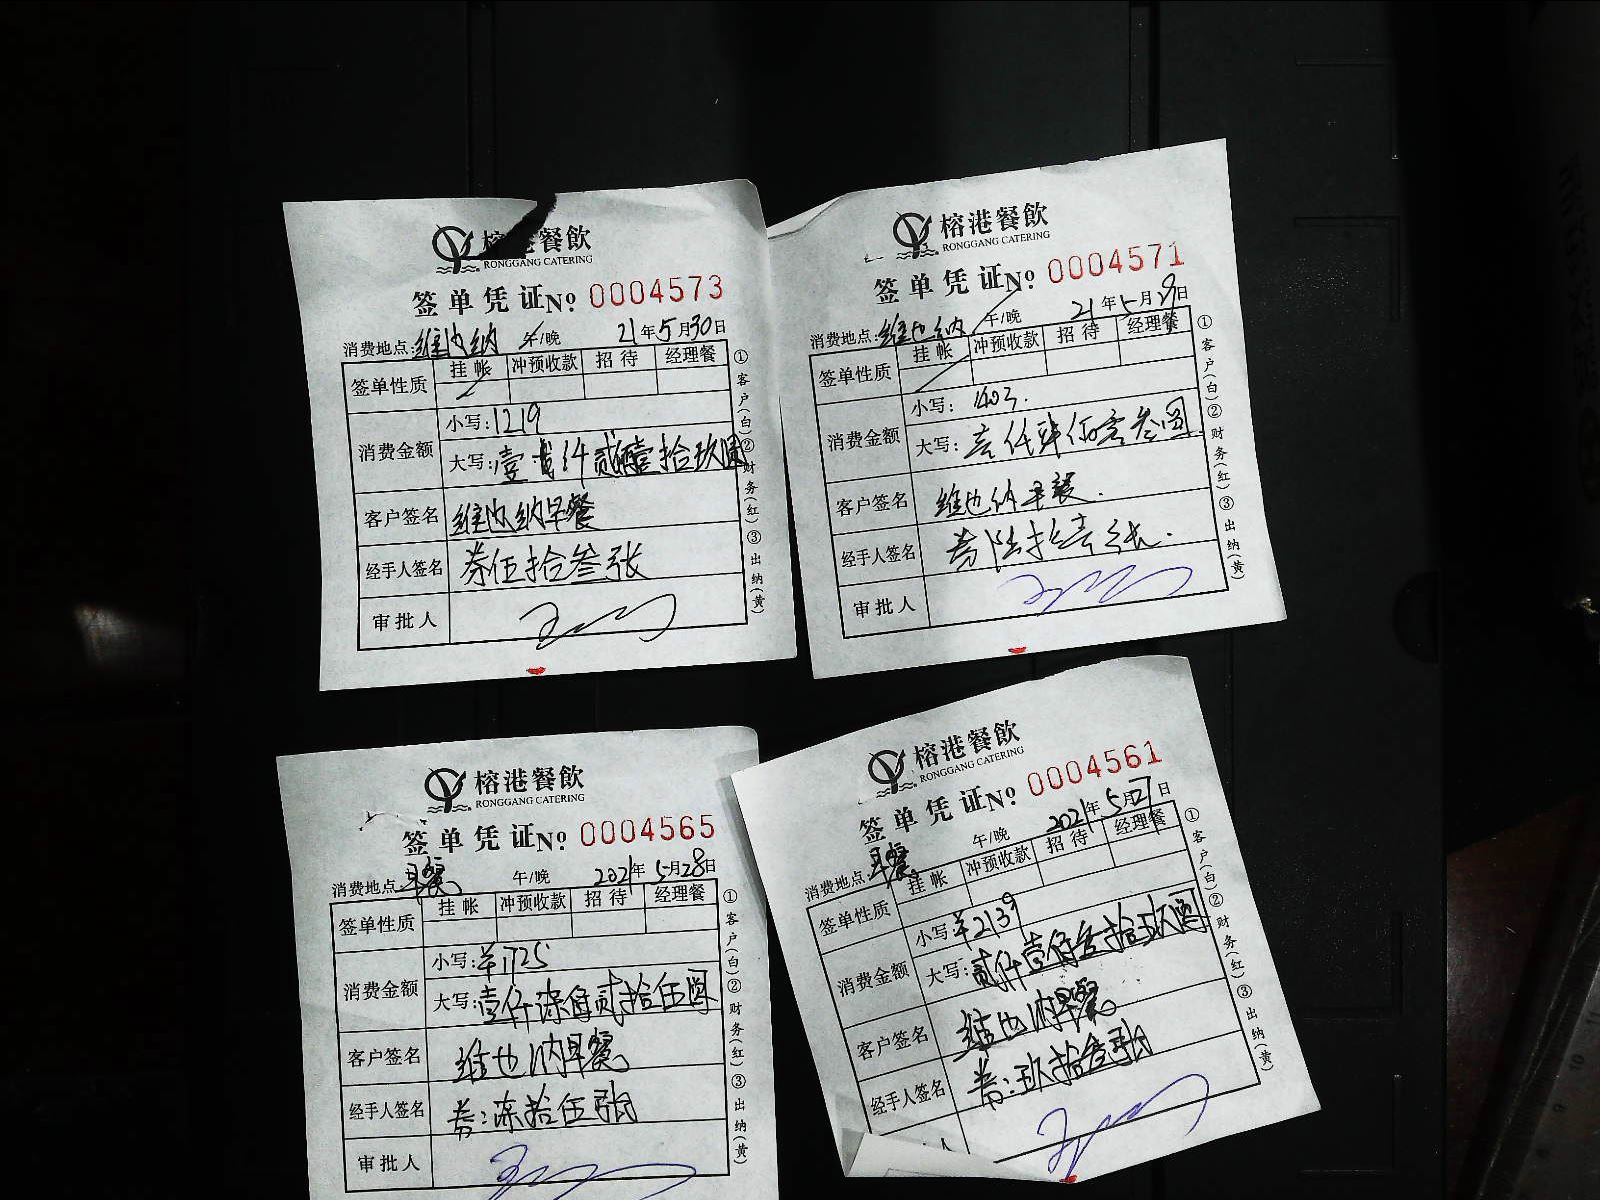 榕港餐飲
RONGGANG CATERING
签单凭证No 0004573
消费地点:维也纳 午/晚 21年5月30日
签单性质 挂帐 冲预收款 招待 经理餐
消费金额 小写:1219
大写:壹 仟贰佰壹拾玖圆
客户签名 维也纳早餐
经手人签名 券伍拾叁张
审批人
①客户(白)②财务(红)③出纳(黄)
榕港餐飲
RONGGANG CATERING
签单凭证No 0004571
消费地点:维也纳 午/晚 21年5月29日
签单性质 挂帐 冲预收款 招待 经理餐
消费金额 小写:1403.
大写:壹仟肆佰零叁圆
客户签名 维也纳早餐.
经手人签名 券陆拾壹张.
审批人
①客户(白)②财务(红)③出纳(黄)
榕港餐飲
RONGGANG CATERING
签单凭证No 0004565
消费地点:早餐 午/晚 2021年5月28日
签单性质 挂帐 冲预收款 招待 经理餐
消费金额 小写:¥1725
大写:壹仟柒佰贰拾伍圆
客户签名 维也纳早餐
经手人签名 券:柒拾伍张
审批人
①客户(白)②财务(红)③出纳(黄)
榕港餐飲
RONGGANG CATERING
签单凭证No 0004561
消费地点:早餐 午/晚 2021年5月27日
签单性质 挂帐 冲预收款 招待 经理餐
消费金额 小写:¥2139
大写:贰仟壹佰叁拾玖圆
客户签名 维也纳早餐
经手人签名 券:玖拾叁张
人
①客户(白)②财务(红)③出纳(黄)